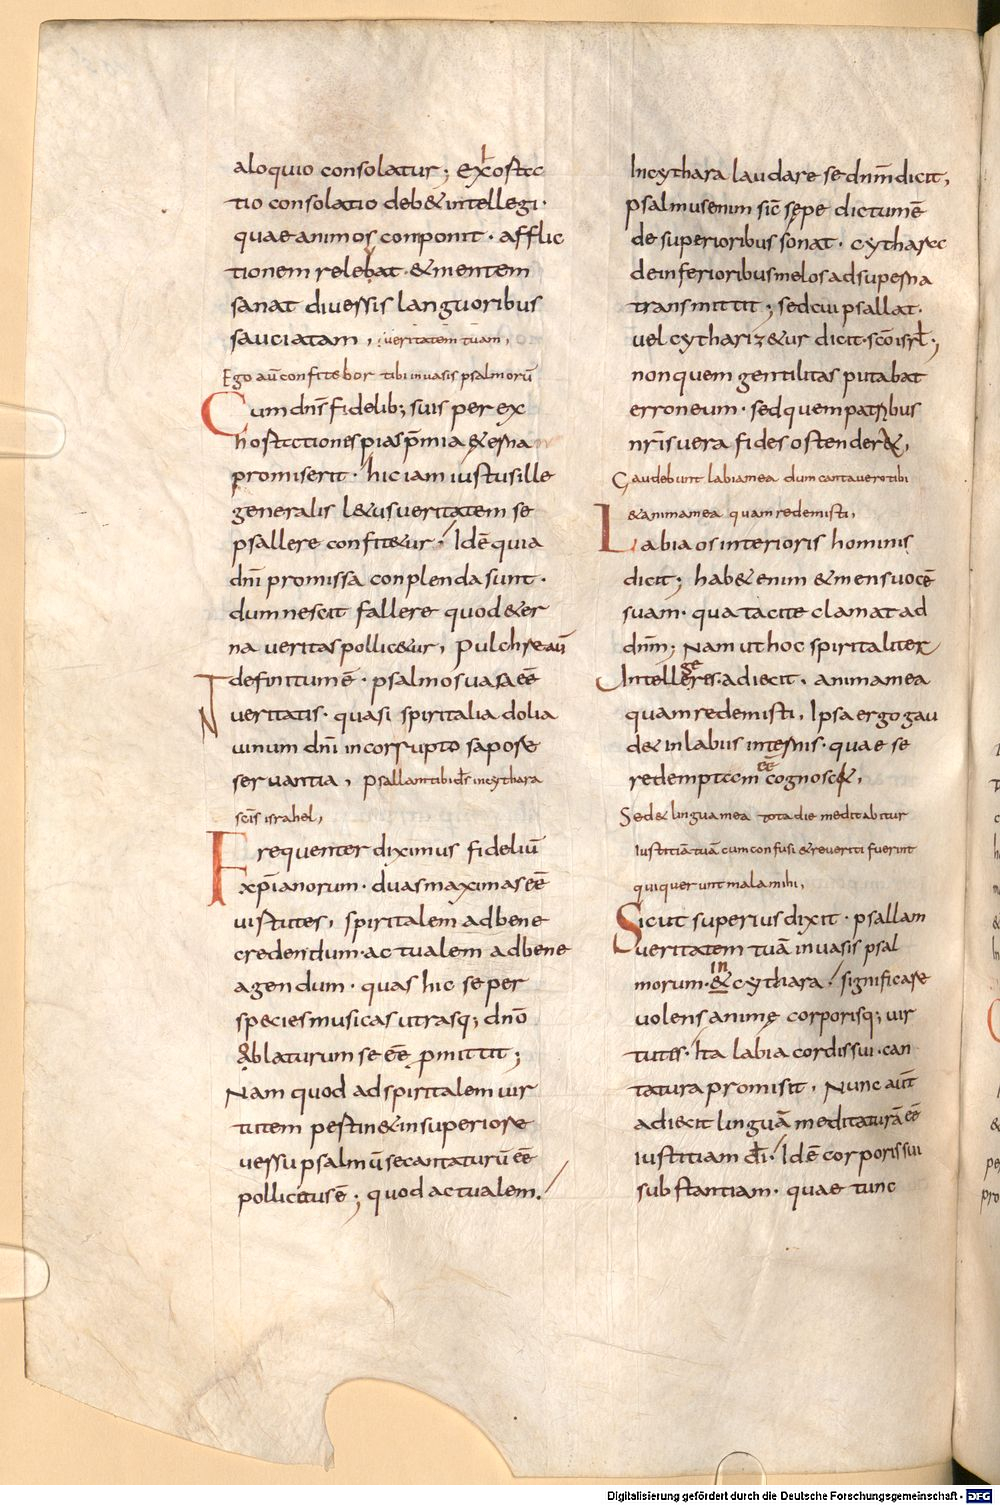 aloquio consolatur; exℎostcc
tio consolatio deb& intellegi·
quae animos componit· afflic
tionem relebat· & mentem
sanat diuersis languoribus
sauciatam, ueritatem tuam,
Ego aū confitebor tibi in uasis psalmorū
Cum dn̄s fidelib; suis per ex
hostationes pias p̄mia & erna
promiserit· hic iam iustus ille
generalis l&us ueritatem se
psallere confit&ur· Idē quia
dn̄i promissa conplenda sunt·
dum nescit fallere quod &er
na ueritas pollic&ur, Pulchre aū
definitum ē· psalmos uasa eē
IN
ueritatis· quasi spiritalia dolia
uinum dn̄i incorrupto sapore
seruantia, Psallam tibi d̄s in cythara
sc̄is israhel,
Frequenter diximus fideliū
xp̄ianorum· duas maximas eē
uirtutes, spiritalem ad bene
credendum· actualem ad bene
agendum· quas hic se per
species musicas utrasq; dn̄o
ablaturum se eē p̱mittit;
Nam quod ad spiritalem uir
tutem pertin& in superiore
uersu psalmū se cantaturū eē
pollicitus ē; quod actualem·
In cythara laudare se dn̄m dicit,
psalmus enim sic̄ sępe dictum ē
de superioribus sonat· cythara
de inferioribus melos ad superna
transmittit; sed cui psallat·
uel cythariz&ur dicit· sc̄o isrł·;
non quem gentilitas putabat
erroneum· sed quem patribus
nr̄is uera fides ostender&,
Gaudebunt labia mea dum cantauero tibi
& anima mea quam redemisti,
Labia os interioris hominis
dicit; hab& enim & mens uocē
suam· qua tacite clamat ad
dn̄m; Nam ut hoc spiritaliter
se
Intelleres· adiecit· anima mea
quam redemisti, Ipsa ergo gau
d& in labiis internis· quae se
eē
redemptam cognosc&,
Sed & lingua mea tota die meditabitur
iustitiā tuā cum confusi & reueriti fuerint
qui querunt mala mihi,
Sicut superius dixit· psallam
ueritatem tuā in uasis psal
in
morum· & cythara· significare
uolens animę corporisq; uir
tutis· Ita labia cordis sui· can
tatura promisit, Nunc aūt
adiecit linguā meditaturā eē
iustitiam dī· Idē corporis sui
substantiam· quae tunc
Digitalisierung gefördert durch die Deutsche Forschungsgemeinschaft - DFG